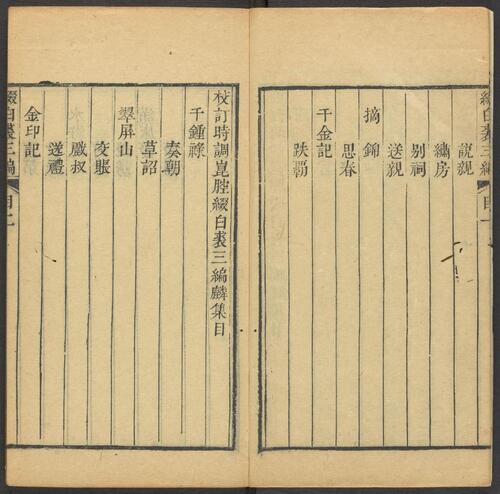 綴白裘三編 目一
說親
繡房
別祠
送親
摘錦
思春
千金記
跌霸
校訂時調崑腔綴白裘三編麟集目
千鍾祿
奏朝
草詔
翠屏山
交賬
戲叔
送禮
金印記
綴白裘三編 目二